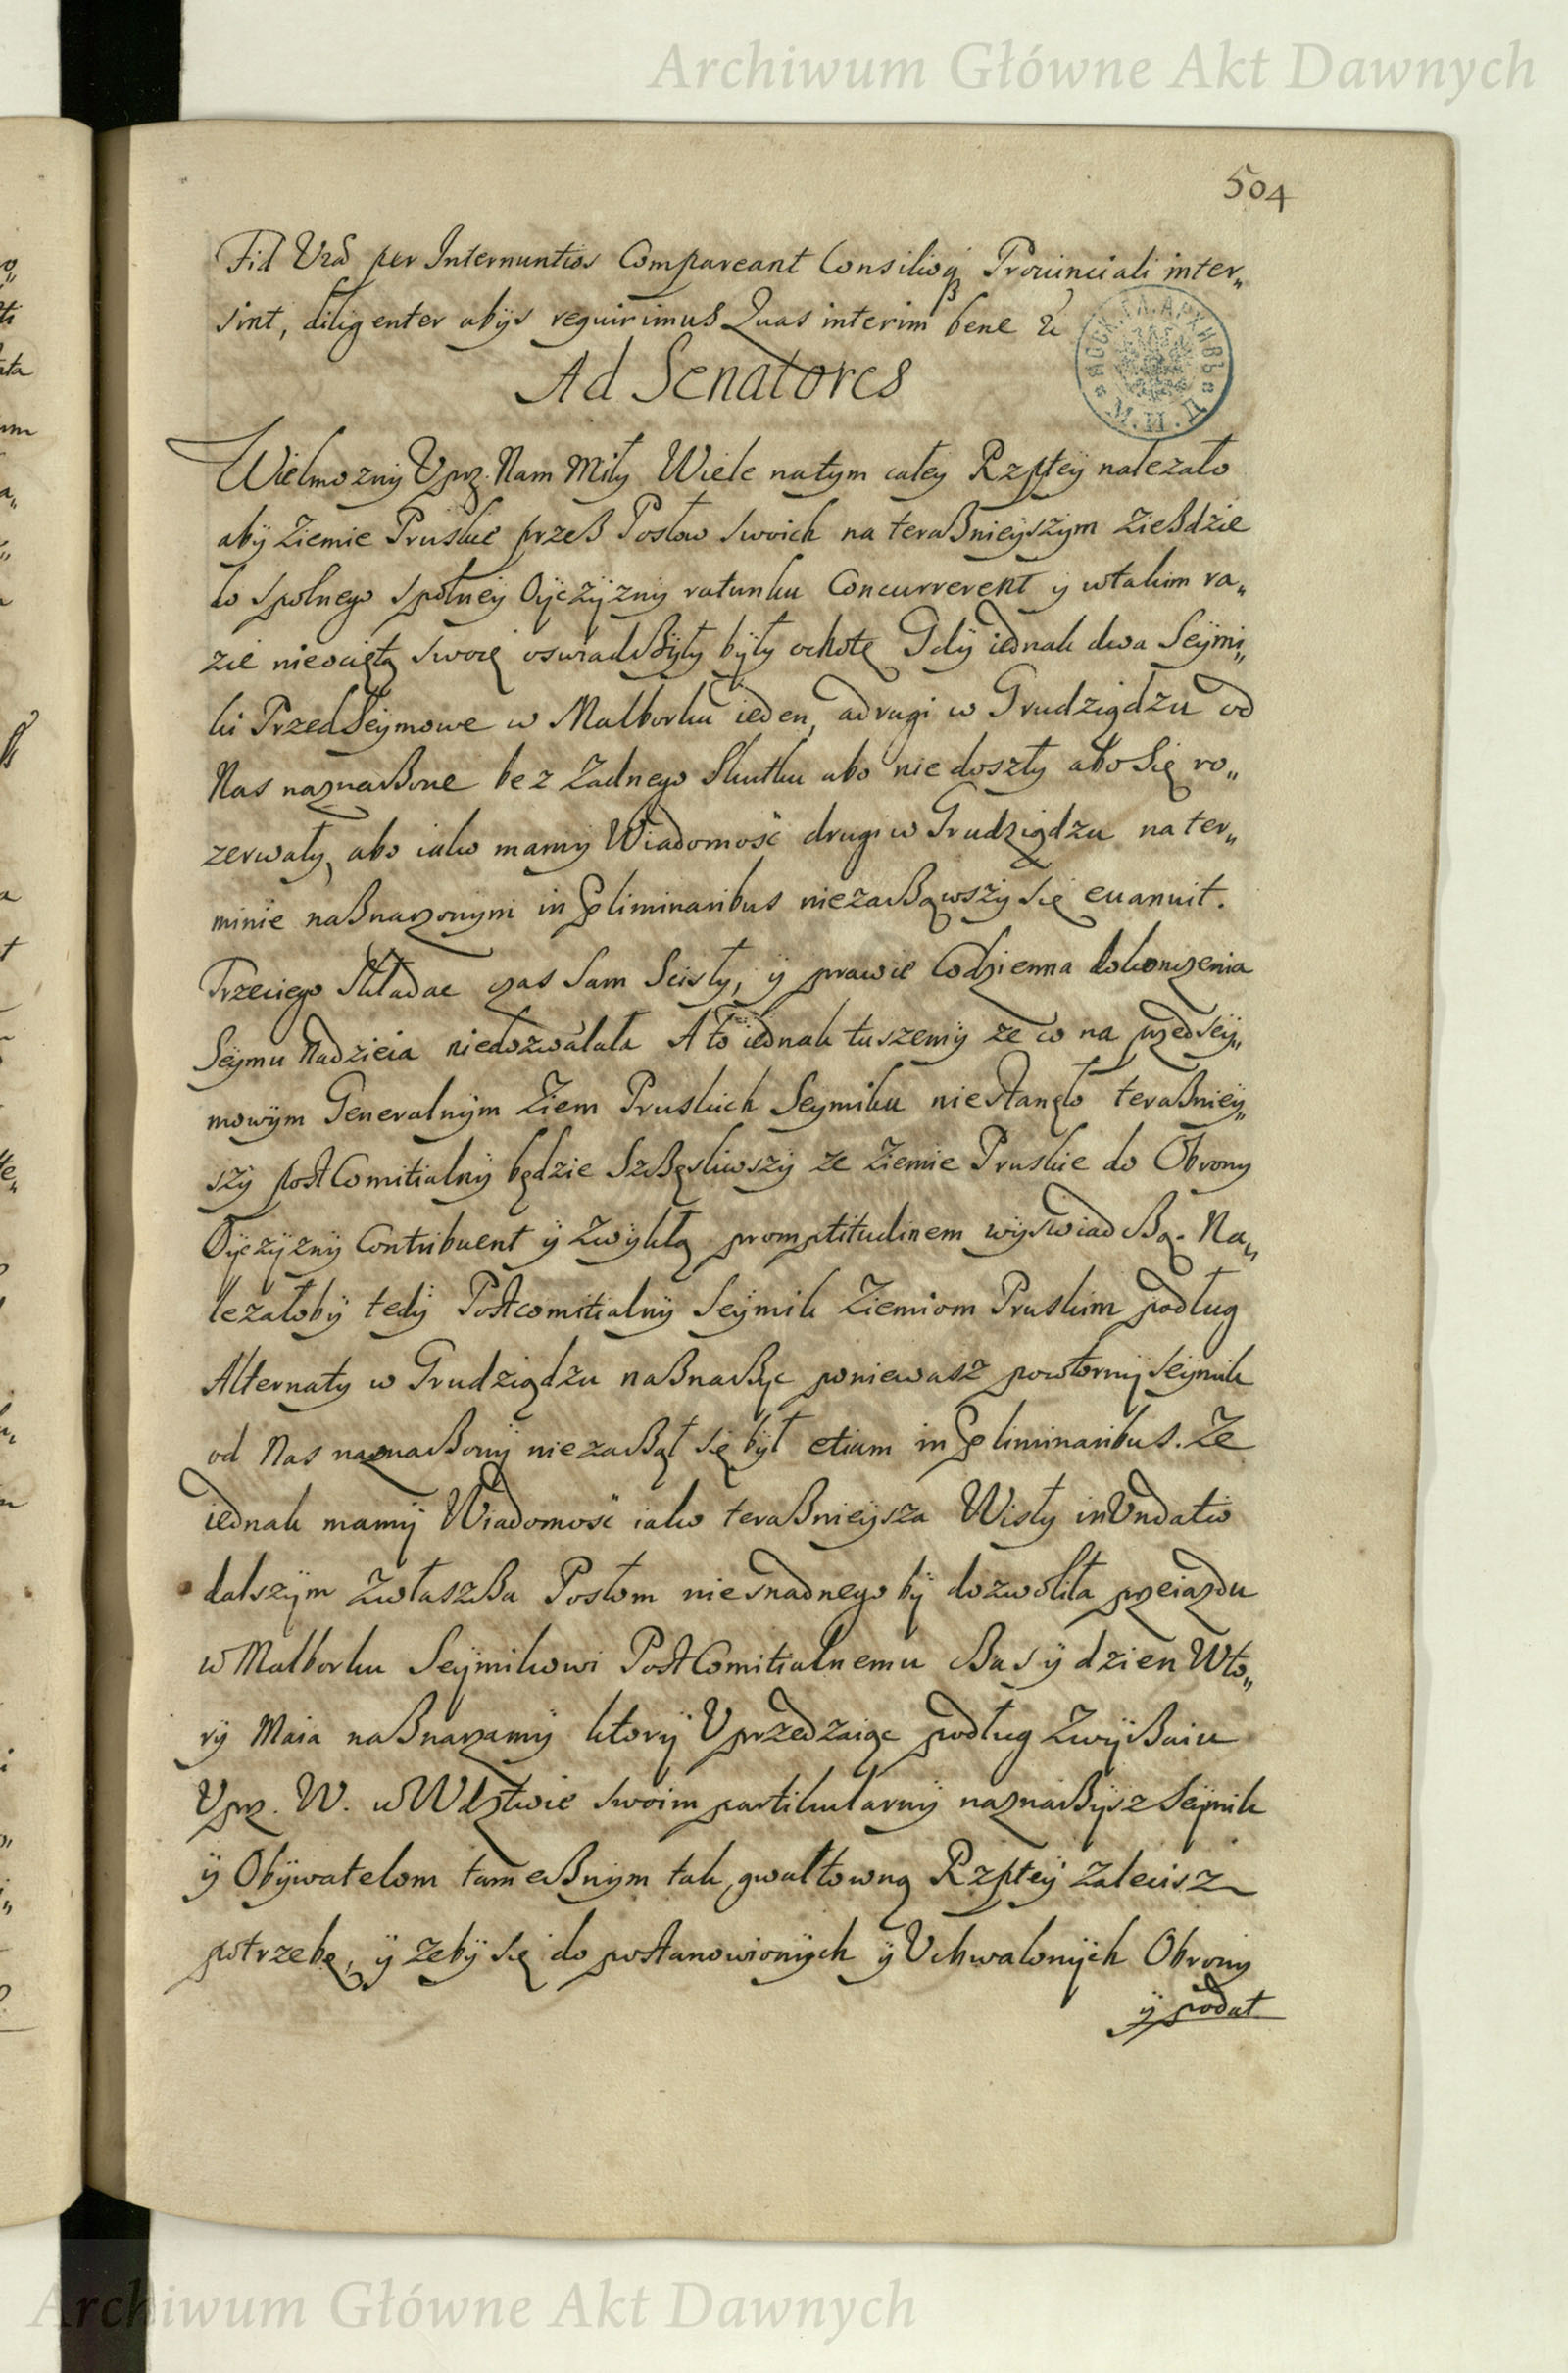 Archiwum Główne Akt Dawnych
504
Fid Vrã per Internuntios Compareant Consilioq Prouinciali inter„
sint, diligenter abijs requirimus Quas interim bene &
Ad Senatores
Wielmozny Vprz. Nam Miły Wiele natym całey Rzptey nalezało
aby Ziemie Pruskie przeß Posłow swoich na teraßnieyszym Zießdzie
do spolnego społney Oyczyzny ratunku Concurrerent y wtakim ra„
zie nieodiętą swoię oswiadcßyły były ochotę Gdy iednak dwa Seymi„
ki PrzedSeymowe w Malborku ieden, adrugi w Grudziądzu od
Nas naznacßone bez Zadnego Skutku abo nie doszły abo Się ro„
zerwały, abo iako mamy Wiadomosc drugi w Grudziądzu na ter„
minie naßnaczonym in Pliminaribus niezacßąwszy się euanuit.
Trzeciego Składac czas Sam Scisły, y prawie Codzienna dokonczenia
Seymu Nadzieia niedozwalała A to iednak tuszemy ze co na przedsey„
mowym Generalnym Ziem Pruskich Seymiku niestanęło teraßniey„
szy postComitialny będzie Szcßęsliwszy ze Ziemie Pruskie do Obrony
Oyczyzny Contribuent y Zwykłą promptitudinem wyswiadcßą. Na„
lezałoby tedy Postcomitialny Seymik Ziemiom Pruskim podług
Alternaty w Grudziądzu naßnacßyc poniewasz powtorny seymik
od Nas naznacßony niezacßął się był etiam in Pliminaribus. Ze
iednak mamy Wiadomosc iako teraßnieysza Wisły inVndatio
dalszym Zwłaszcßa Posłom niesnadnego by dozwoliła przeiazdu
w Malborku Seymikowi PostComitialnemu cßas y dzien Wto„
ry Maia naßnaczamy ktory Vprzedzaiąc podług Zwycßaiu
Vprz. W. w Wdztwie swoim partikularny naznacßysz Seymik
y Obywatelom tameßnym tak gwałtowną Rzptey zalecisz
potrzebę, y zeby się do postanowionych y Vchwalonych Obrony
y podat
Archiwum Główne Akt Dawnych